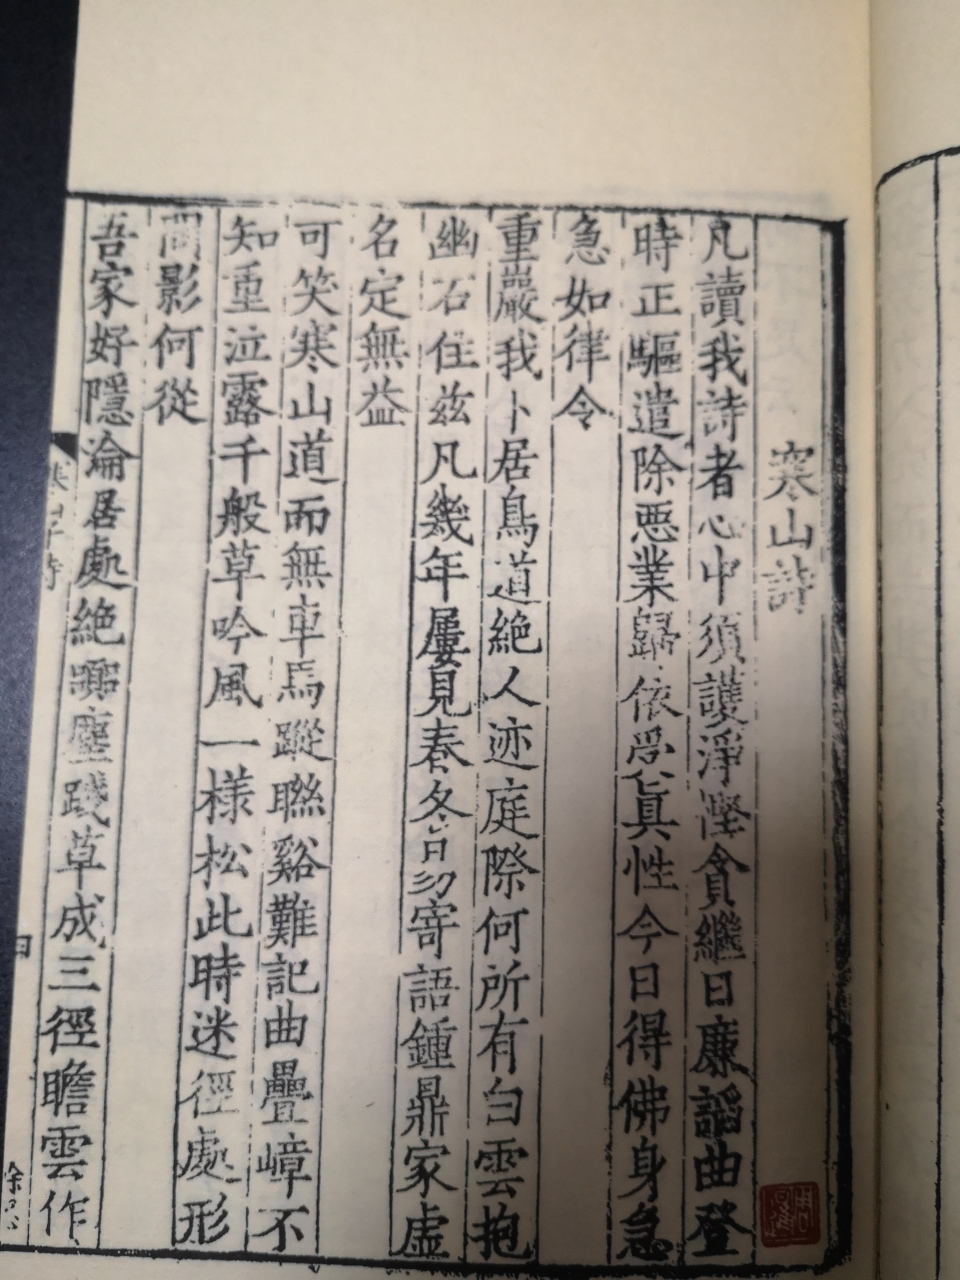 寒山詩
凡讀我詩者心中須護淨慳貪繼日廉謟曲登
時正驅遣除惡業歸依受真性今日得佛身急
急如律令
重巖我卜居鳥道絶人迹庭際何所有白雲抱
幽石住兹凡幾年屢見春冬易寄語鍾鼎家虛
名定無益
可笑寒山道而無車馬蹤聯谿難記曲疊嶂不
知重泣露千般草吟風一樣松此時迷徑處形
問影何從
吾家好隱淪居處絶囂塵踐草成三徑瞻雲作
寒山子詩
四